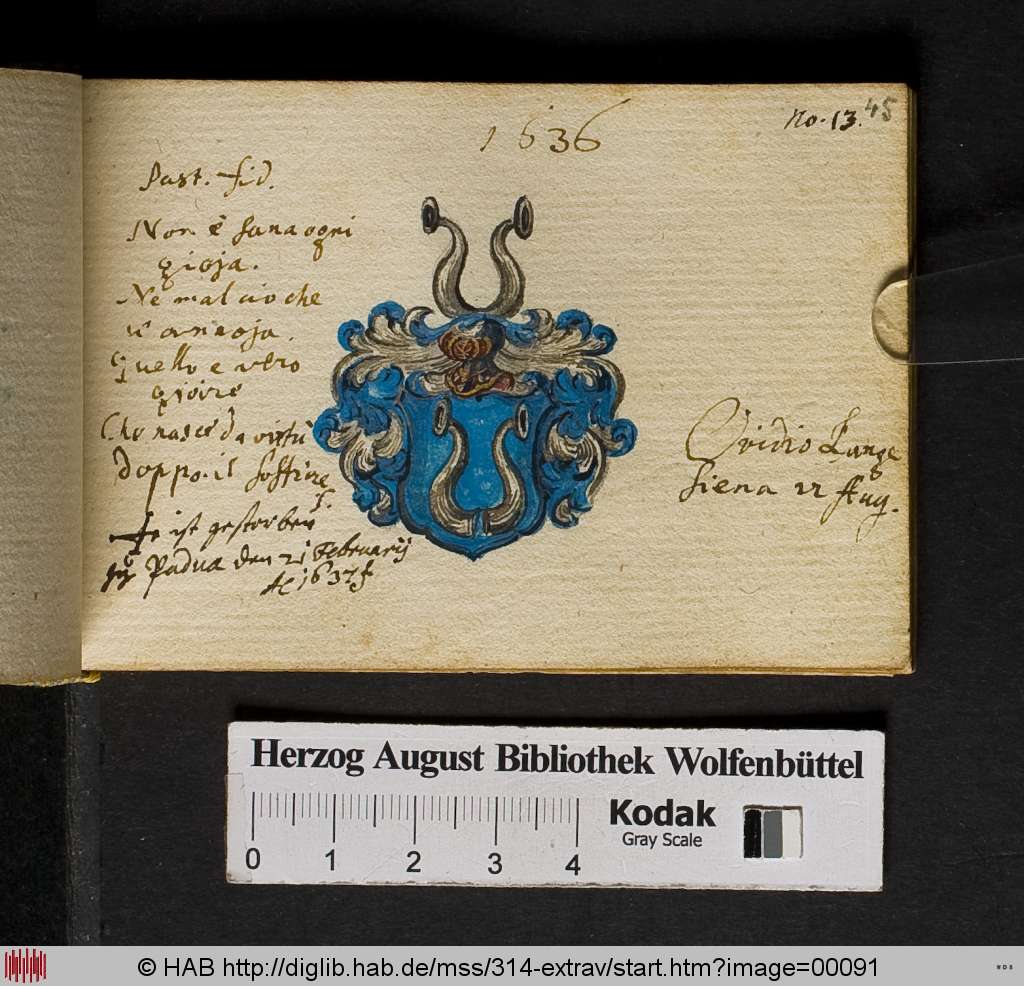 1636
No. 13.
45
Past. fid.
Non è sana ogni
gioja.
Ne mal cio che
v' annoja.
Quello e vero
gioire
Che nasce da virtù
doppo il soffrire
ist gestorben
zu Padua den 21 Februarij
Ao 1637
Ovidio Lange
Siena 22 Aug.
Herzog August Bibliothek Wolfenbüttel
Kodak
Gray Scale
0 1 2 3 4
© HAB http://diglib.hab.de/mss/314-extrav/start.htm?image=00091
WDB